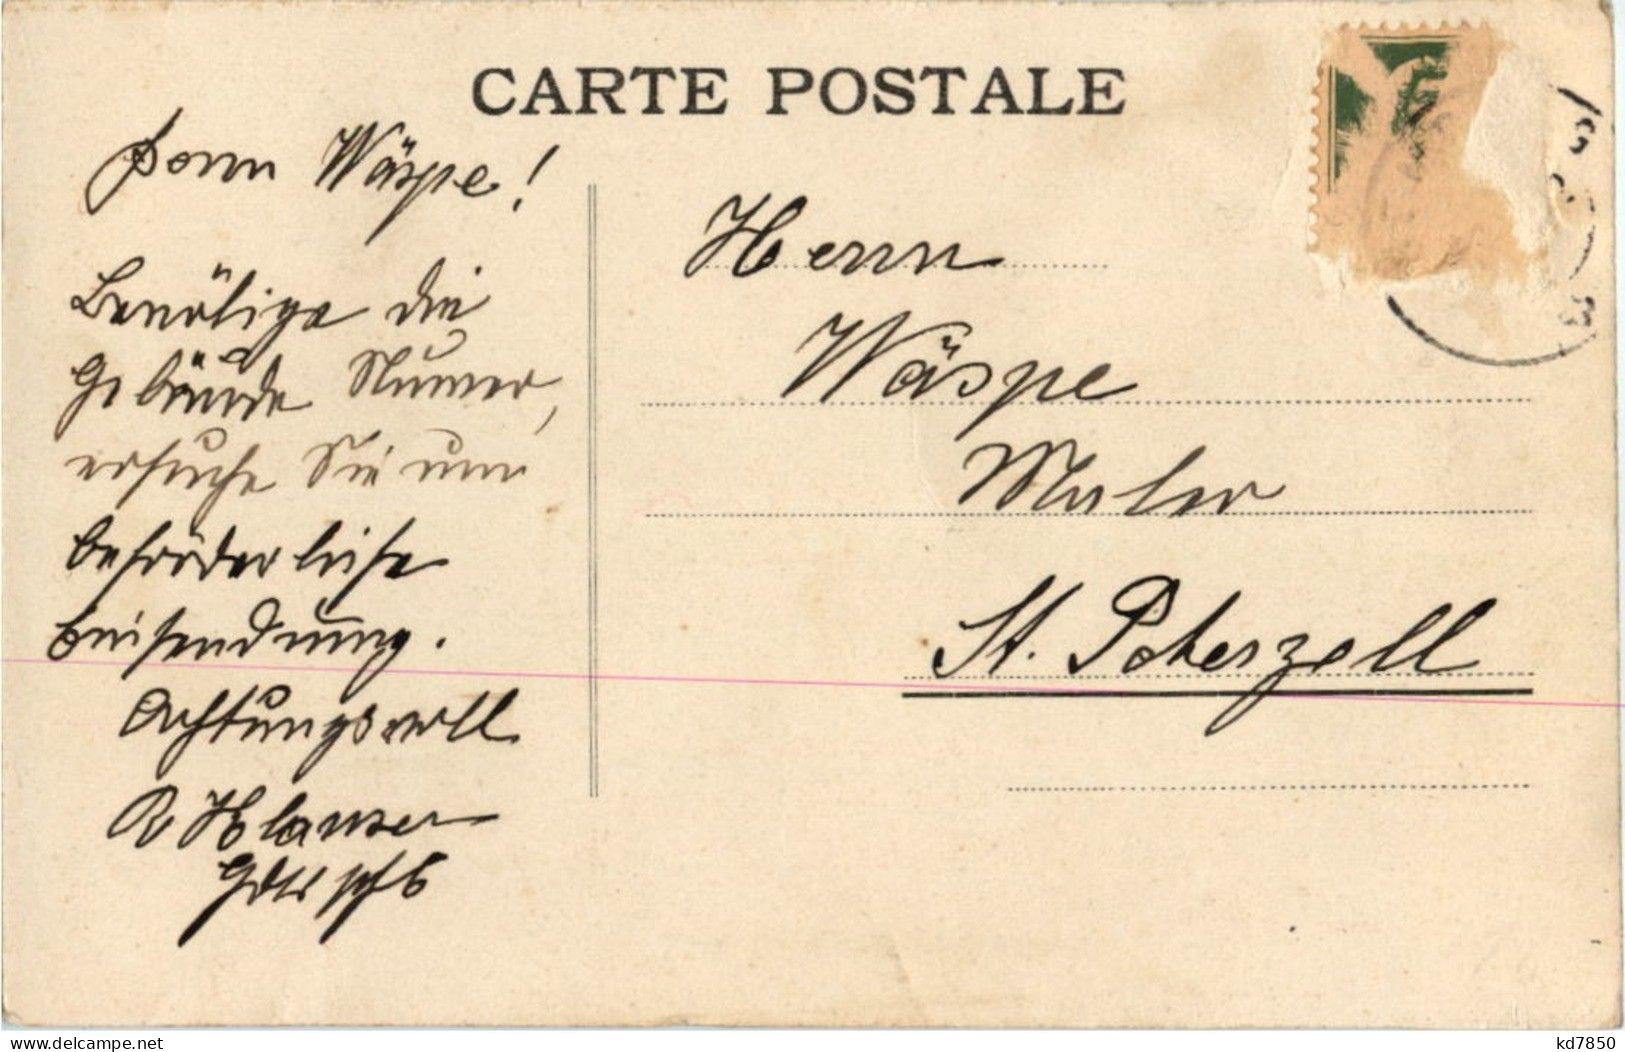 CARTE POSTALE
Herrn Wäspe!
Benötige die
Gebäude Numer,
ersuche Sie um
beförderliche
Einsendung.
Achtungsvoll
R Klauser
Herrn
Wäspe
Maler
St. Peterzell
kd7850